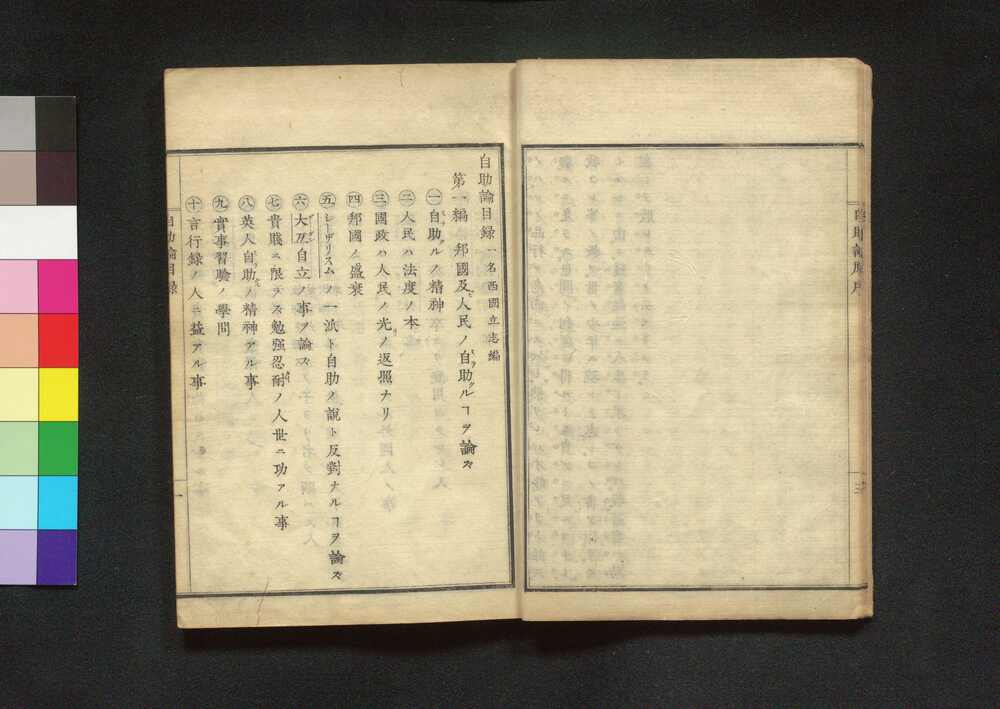 自助論原序
自助論目録 一名西國立志編
第一編 邦國及ビ人民ノ自ラ助クルヿヲ論ズ
㊀自ラ助クルノ精神
㊁人民ハ法度ノ本
㊂國政ハ人民ノ光リノ返照ナリ
㊃邦國ノ盛衰
㊄シーザリスムノ一派ト自助ノ說ト反對ナルヿヲ論ズ
㊅大（ダーガン）自立ノ事ヲ論ズ
㊆貴賤ニ限ラズ勉強忍耐ノ人世ニ功アル事
㊇英人自ラ助クルノ精神アル事
㊈實事習驗ノ學問
㊉言行録ノ人ニ益アル事
自助論目録
一